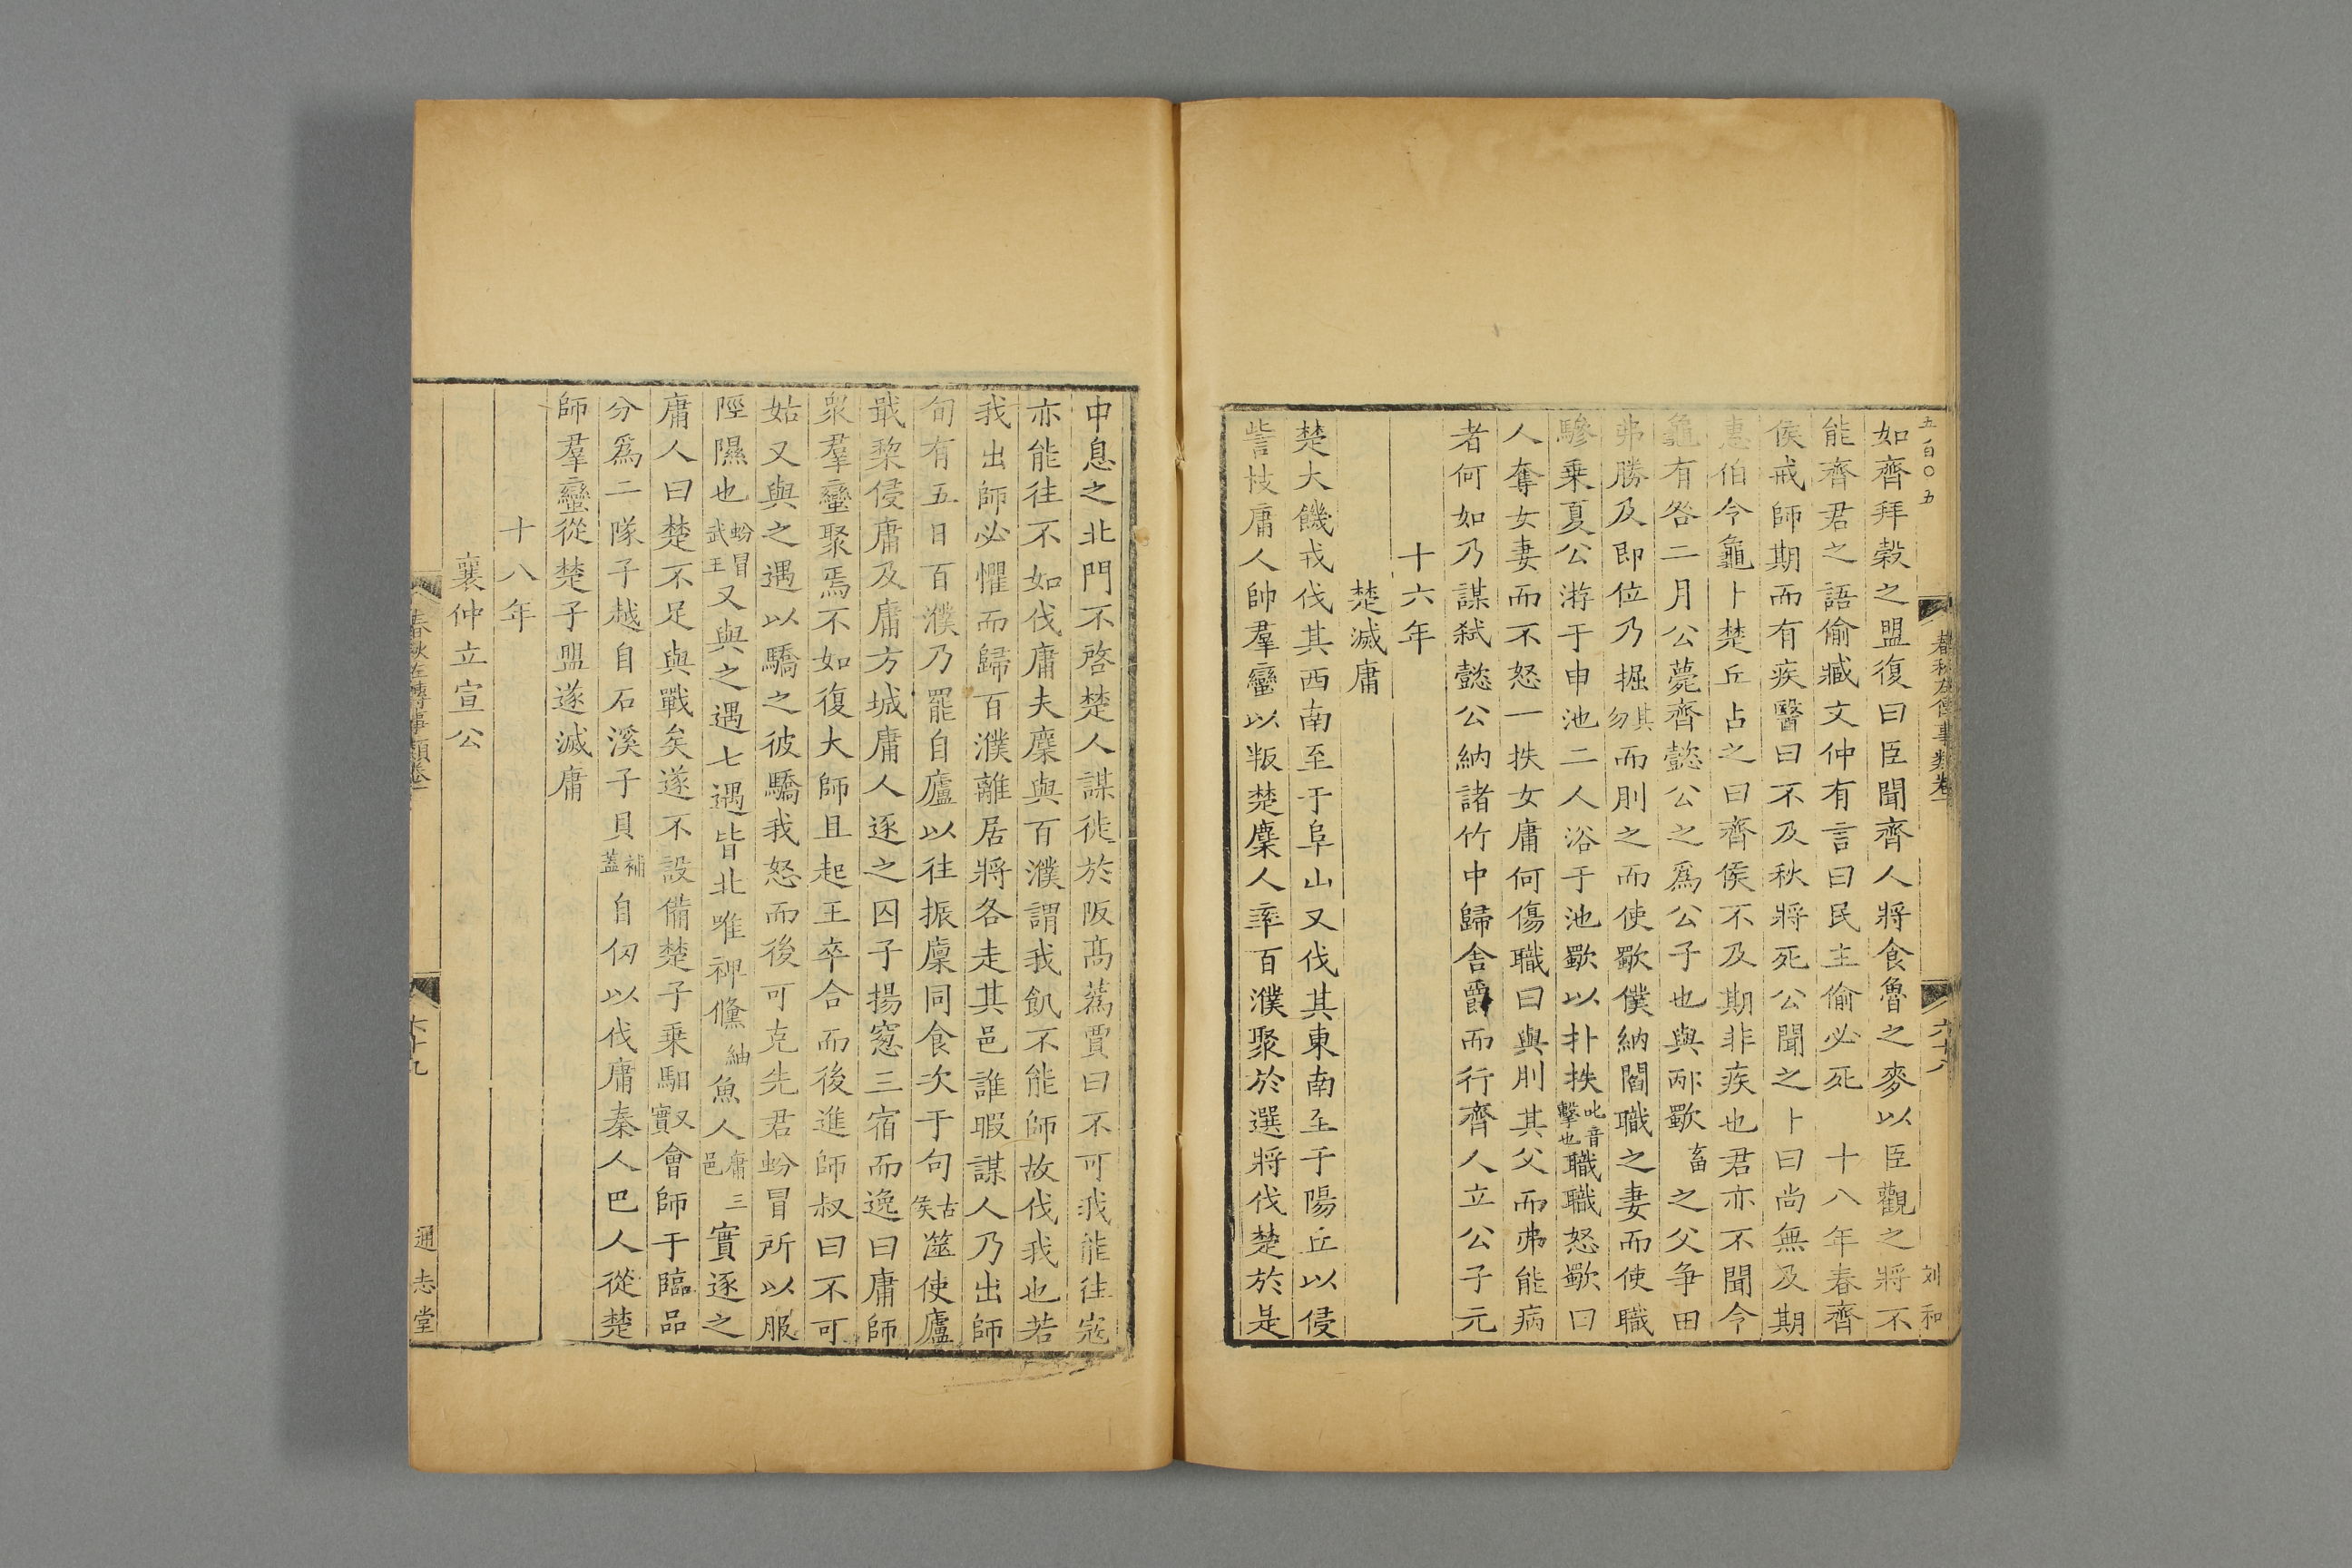 五百〇五
春秋左傳事類卷
六十八
刘和
如齊拜榖之盟復曰臣聞齊人將食魯之麥以臣觀之將不
能齊君之語偷臧文仲有言曰民主偷必死 十八年春齊
侯戒師期而有疾醫曰不及秋將死公聞之卜曰尚無及期
惠伯令龜卜楚丘占之曰齊侯不及期非疾也君亦不聞令
龜有咎二月公薨齊懿公之爲公子也與邴歜畜之父争田
弗勝及即位乃掘其勿而刖之而使歜僕納閻職之妻而使職
驂乗夏公游于申池二人浴于池歜以扑抶叱音擊也職職怒歜曰
人奪女妻而不怒一抶女庸何傷職曰與刖其父而弗能病
者何如乃謀弑懿公納諸竹中歸舍爵而行齊人立公子元
十六年
楚滅庸
楚大饑戎伐其西南至于阜山又伐其東南至于陽丘以侵
訾枝庸人帥羣蠻以叛楚麇人率百濮聚於選將伐楚於是
申息之北門不啓楚人謀徙於阪髙蒍賈曰不可我能往寇
亦能往不如伐庸夫麇與百濮謂我飢不能師故伐我也若
我出師必懼而歸百濮離居將各走其邑誰暇謀人乃出師
旬有五日百濮乃罷自廬以往振廩同食次于句古侯澨使廬
戢棃侵庸及庸方城庸人逐之囚子揚窓三宿而逸曰庸師
衆羣蠻聚焉不如復大師且起王卒合而後進師叔曰不可
姑又與之遇以驕之彼驕我怒而後可克先君蚡冒所以服
陘隰也蚡冒武王又與之遇七遇皆北唯裨儵紬魚人庸三邑實逐之
庸人曰楚不足與戰矣遂不設備楚子乗馹又實會師于臨品
分爲二隊子越自石溪子貝補蓋自仞以伐庸秦人巴人從楚
師羣蠻從楚子盟遂滅庸
十八年
襄仲立宣公
春秋左傳事類卷
六十九
通志堂